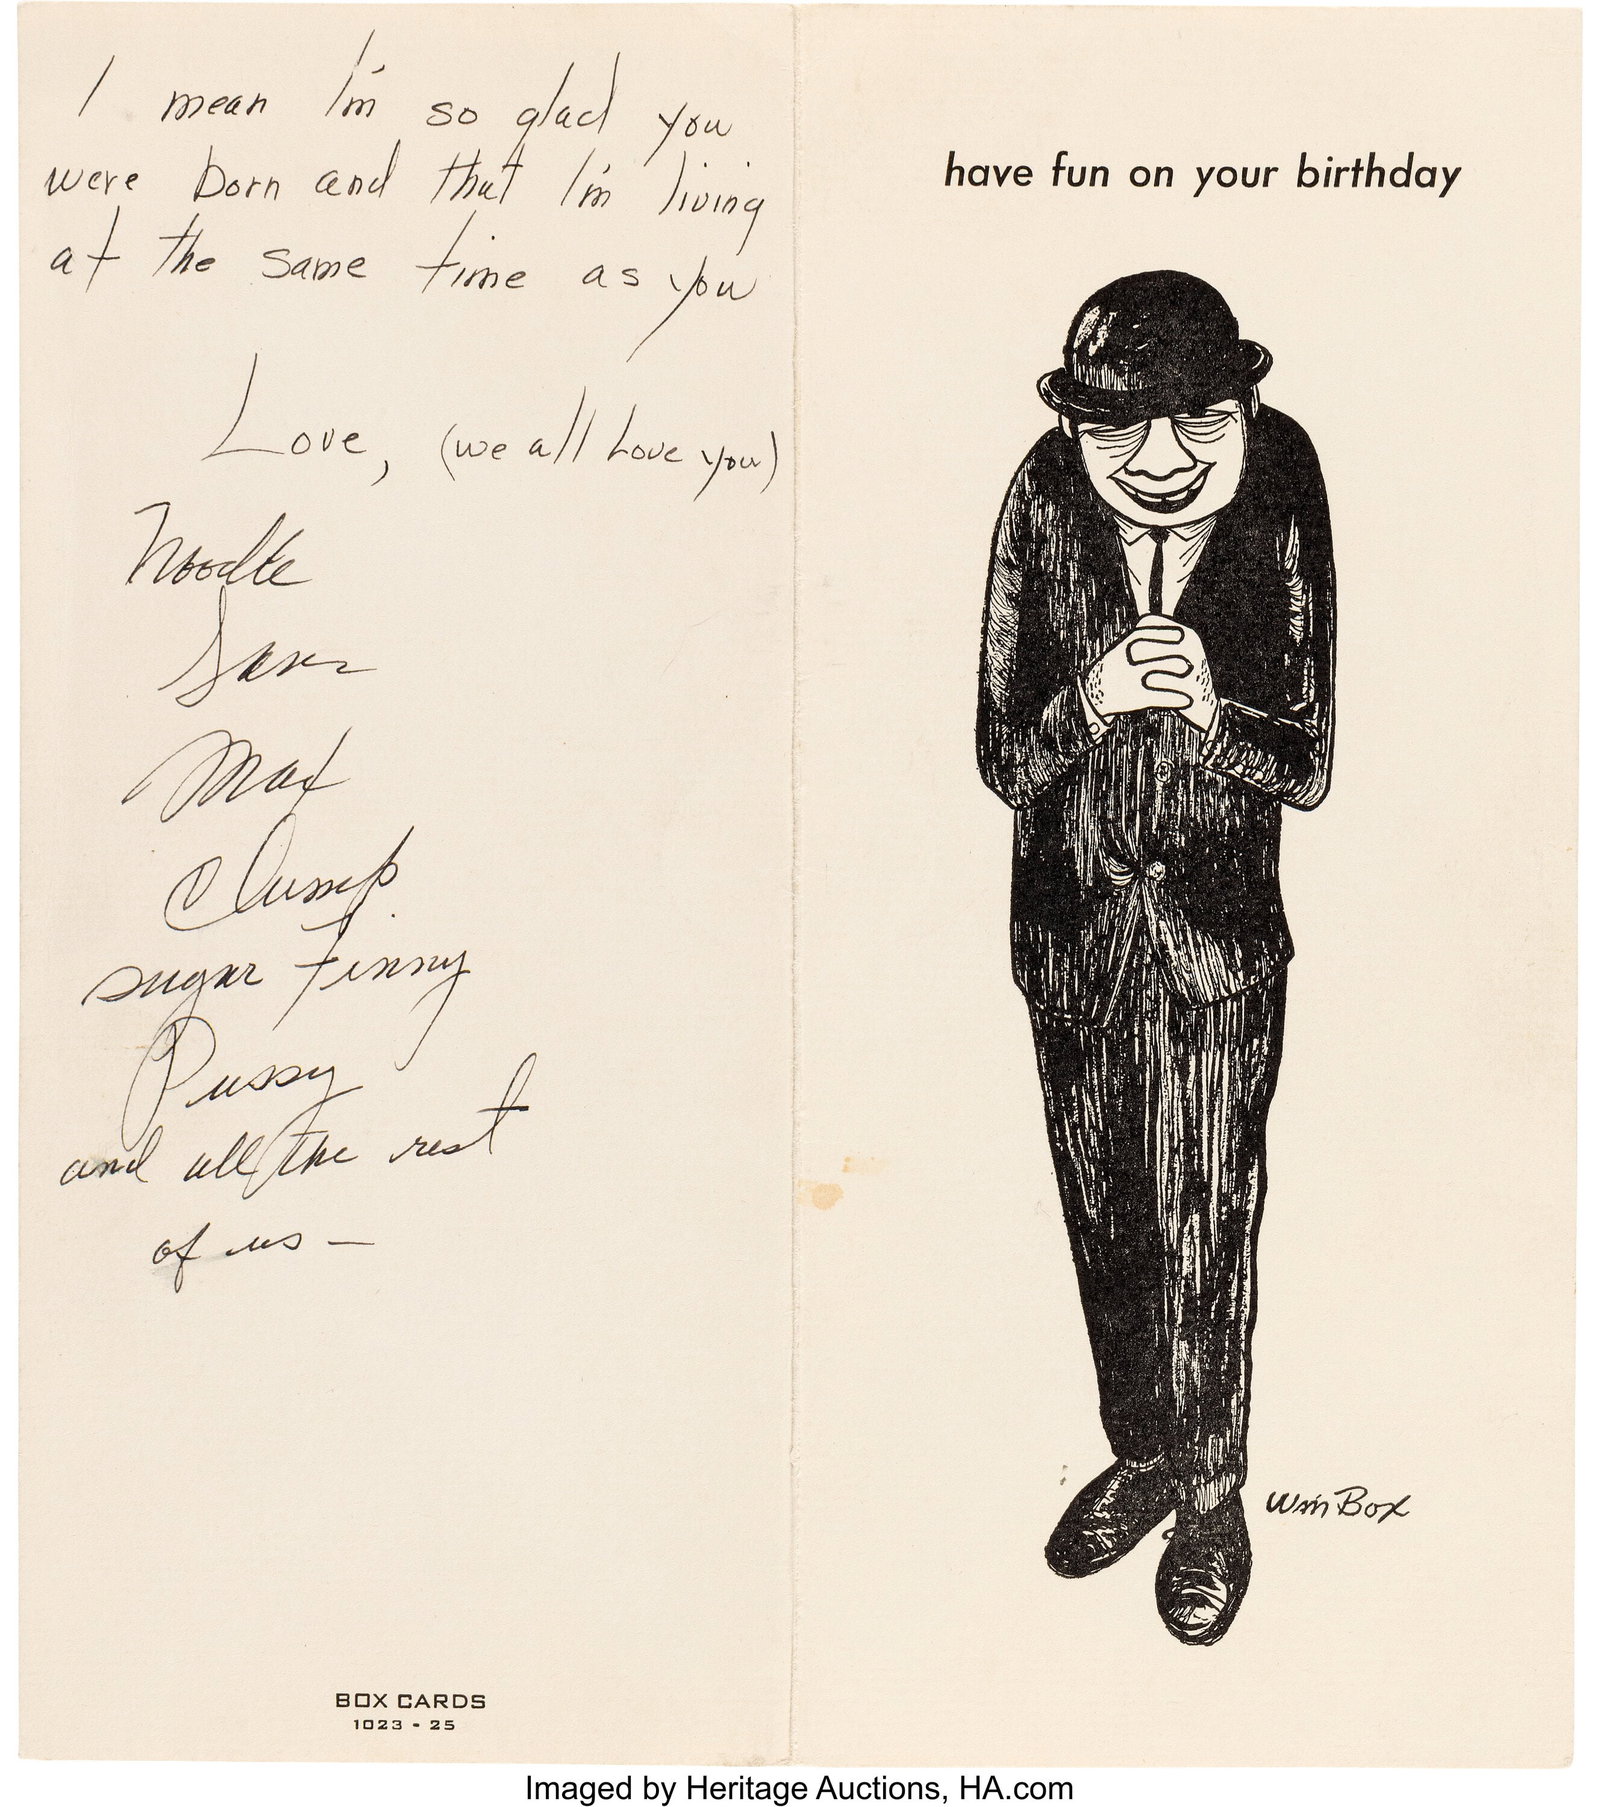 I mean I'm so glad you
were born and that I'm living
at the same time as you
Love, (we all love you)
Noodle
Sam
Max
Clump
sugar Finny
Pussy
and all the rest
of us —
BOX CARDS
1023 - 25
have fun on your birthday
Wm Box
Imaged by Heritage Auctions, HA.com